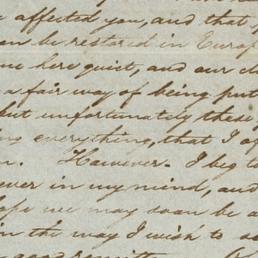 affected you, and that
be restored in Europ
me here quiet, and our cl
a fair way of being put
but unfortunately these
everything, that I
However. I beg t
ever in my mind, and
hope we may soon be a
in the way I wish to s
good